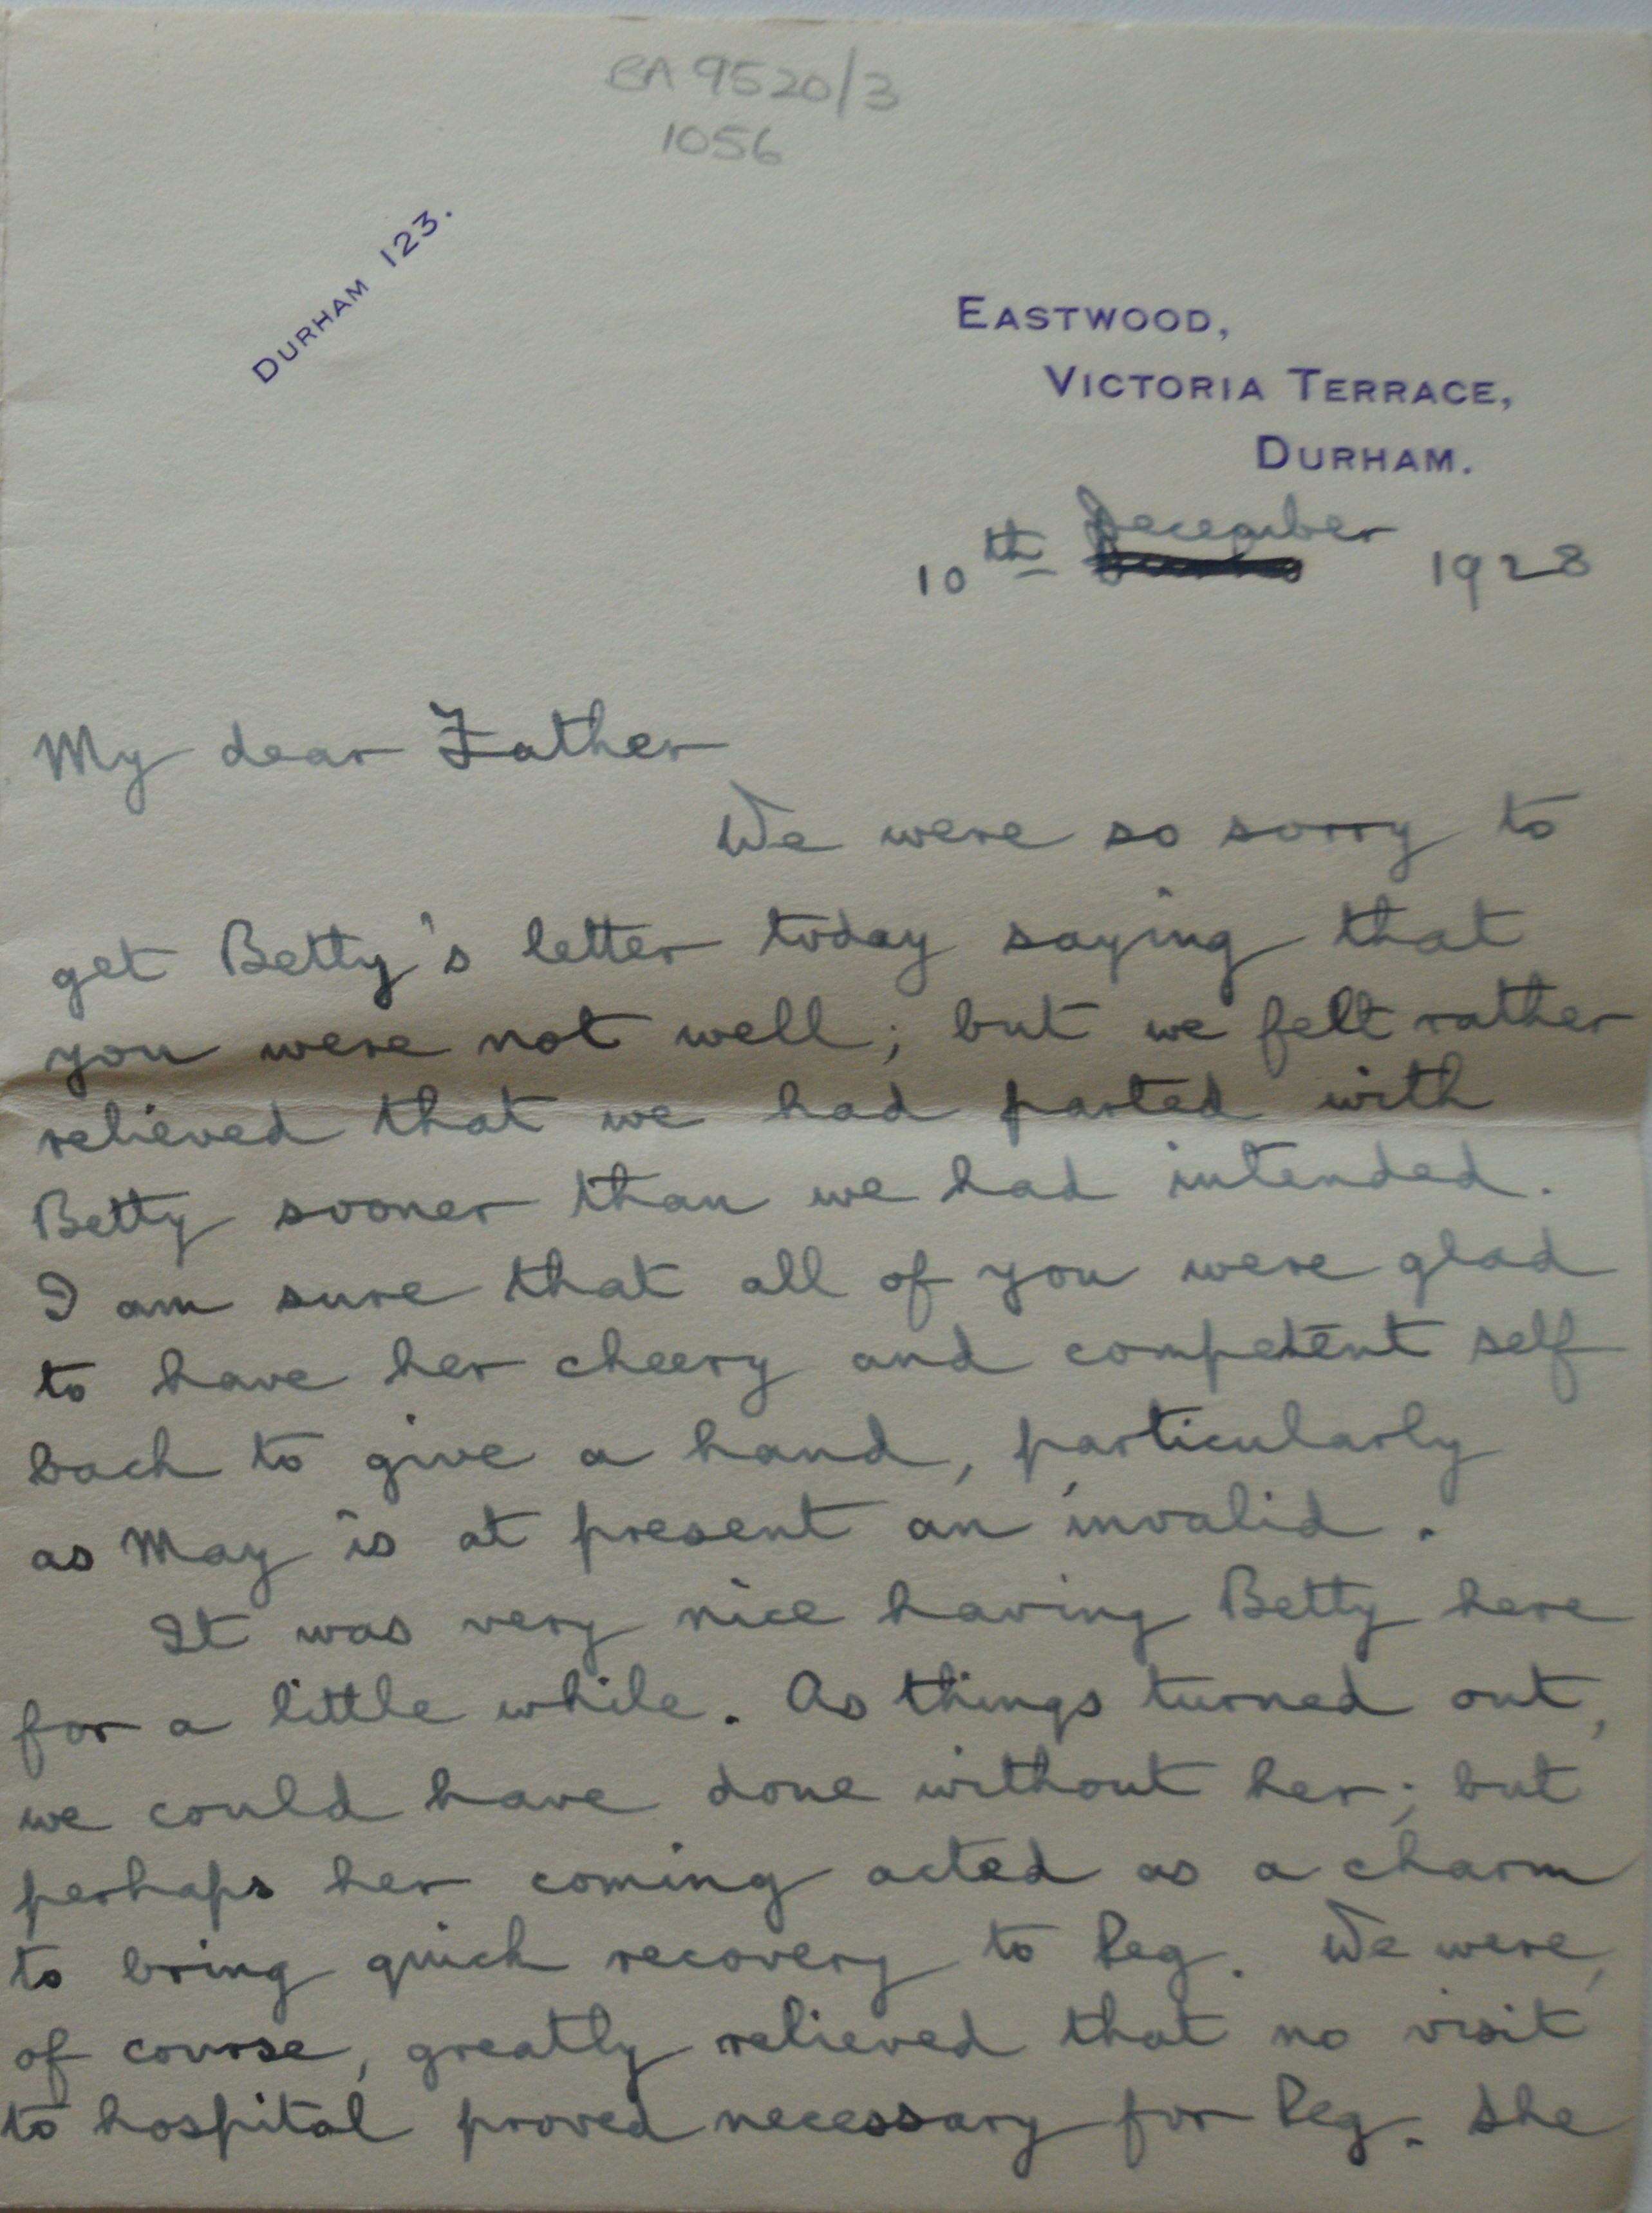 BA 9520/3
1056
DURHAM 123.
EASTWOOD,
VICTORIA TERRACE,
DURHAM.
December
10th 1928
My dear Father
We were so sorry to
get Betty's letter today saying that
you were not well; but we felt rather
relieved that we had parted with
Betty sooner than we had intended.
I am sure that all of you were glad
to have her cheery and competent self
back to give a hand, particularly
as May is at present an invalid.
It was very nice having Betty here
for a little while. As things turned out,
we could have done without her; but
perhaps her coming acted as a charm
to bring quick recovery to Peg. We were,
of course, greatly relieved that no visit
to hospital proved necessary for Peg. She